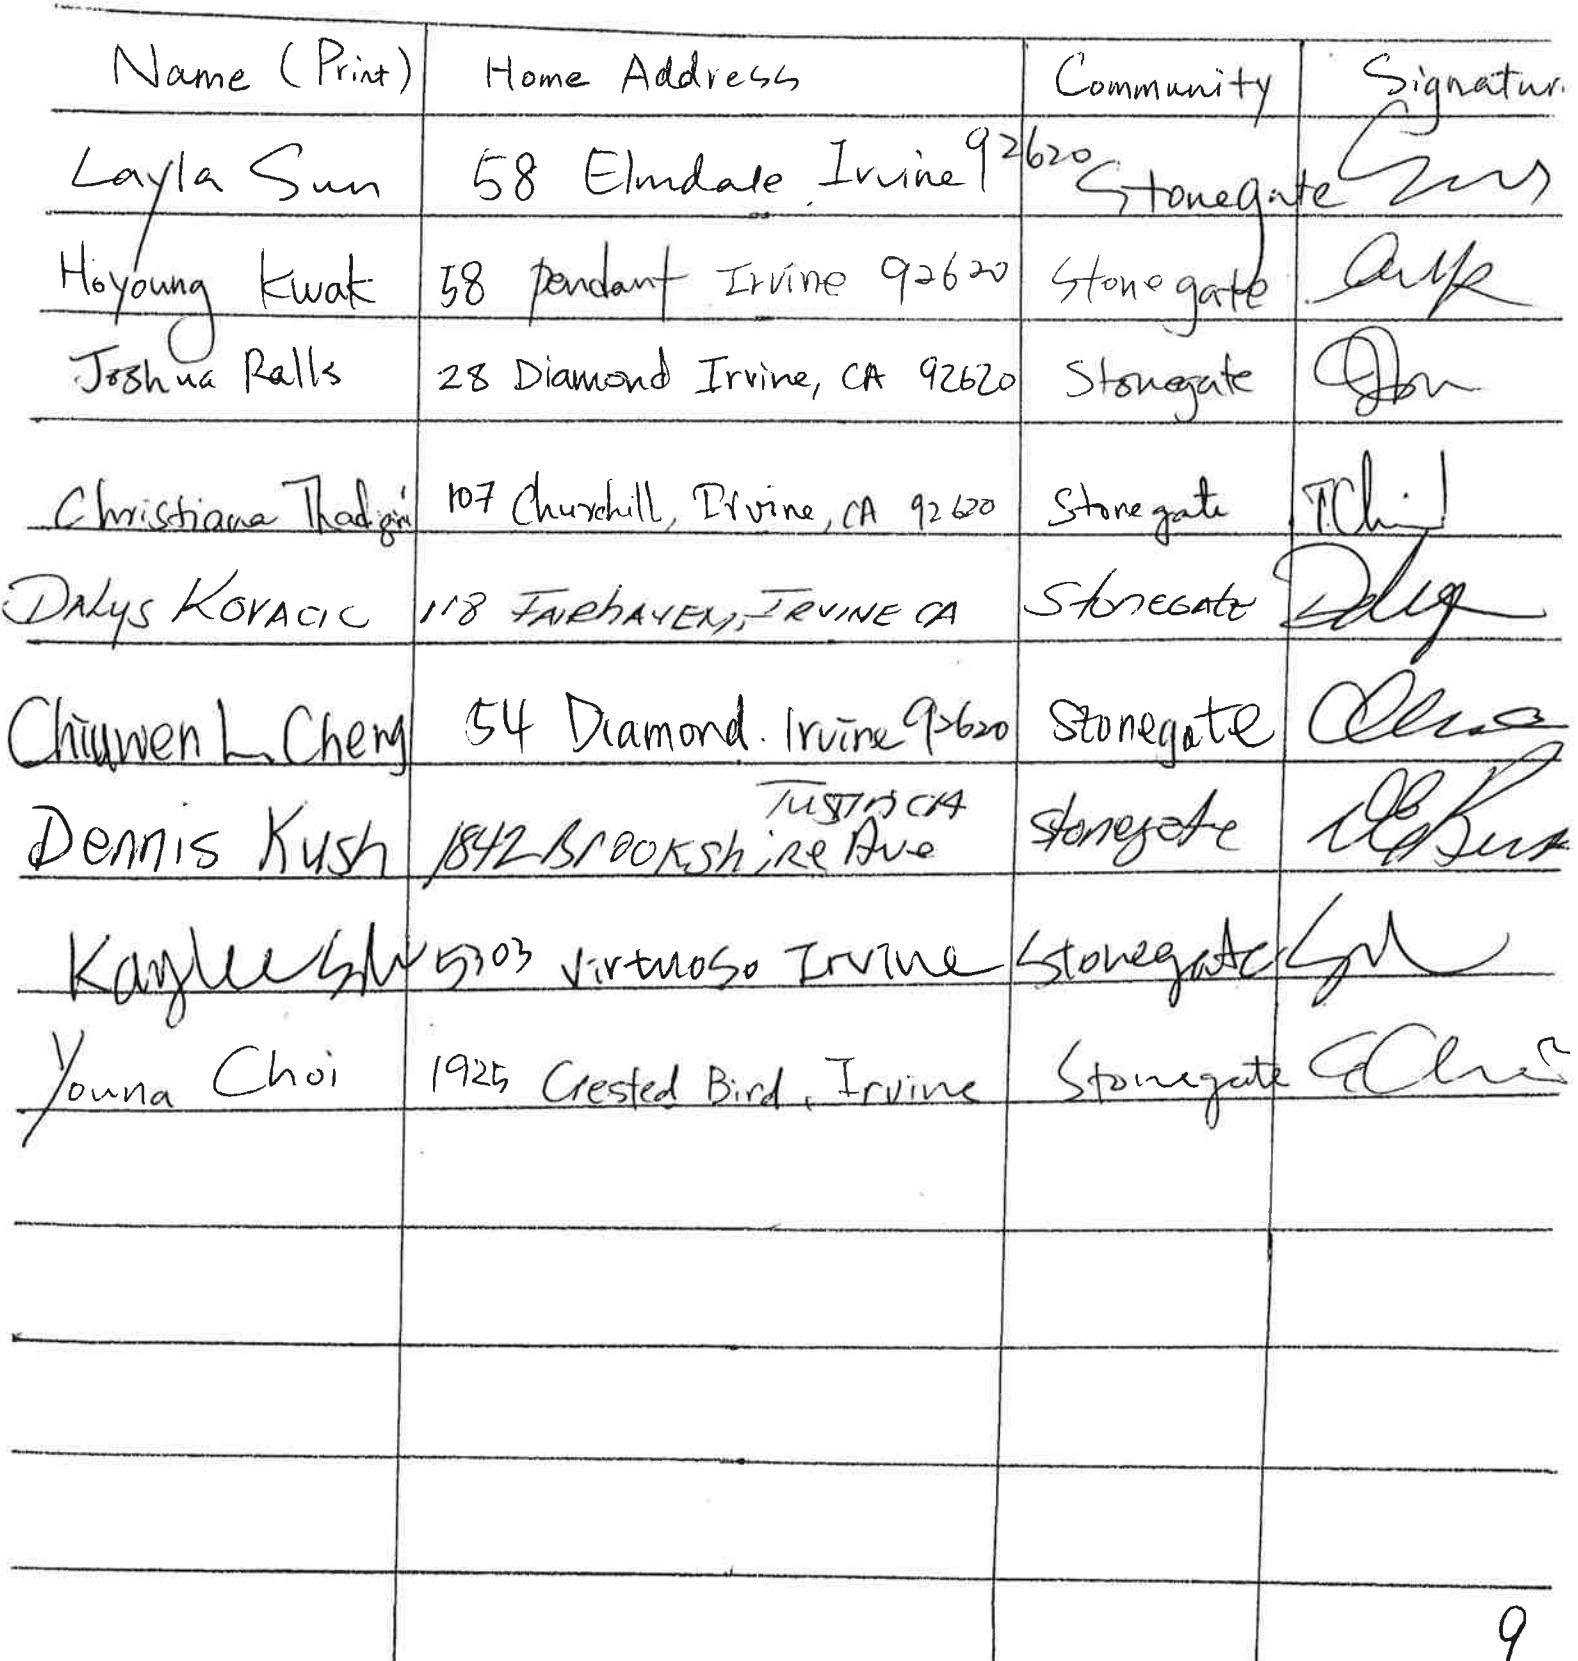 Name (Print) Home Address Community Signatur.
Layla Sun 58 Elmdale Irvine 92620 Stonegate
Hoyoung Kwak 58 Pendant Irvine 92620 Stonegate
Joshua Ralls 28 Diamond Irvine, CA 92620 Stonegate
Christiana 107 Churchill, Irvine, CA 92620 Stonegate
DALYS KOVACIC 118 FAIRHAVEN, IRVINE CA STONEGATE
Chiuwen L Cheng 54 Diamond. Irvine 92620 Stonegate
TUSTIN CA
Dennis Kush 1842 Brookshire Ave Stonegate
Kaylee 5303 Virtuoso Irvine Stonegate
Youna Choi 1925 Crested Bird, Irvine Stonegate
9